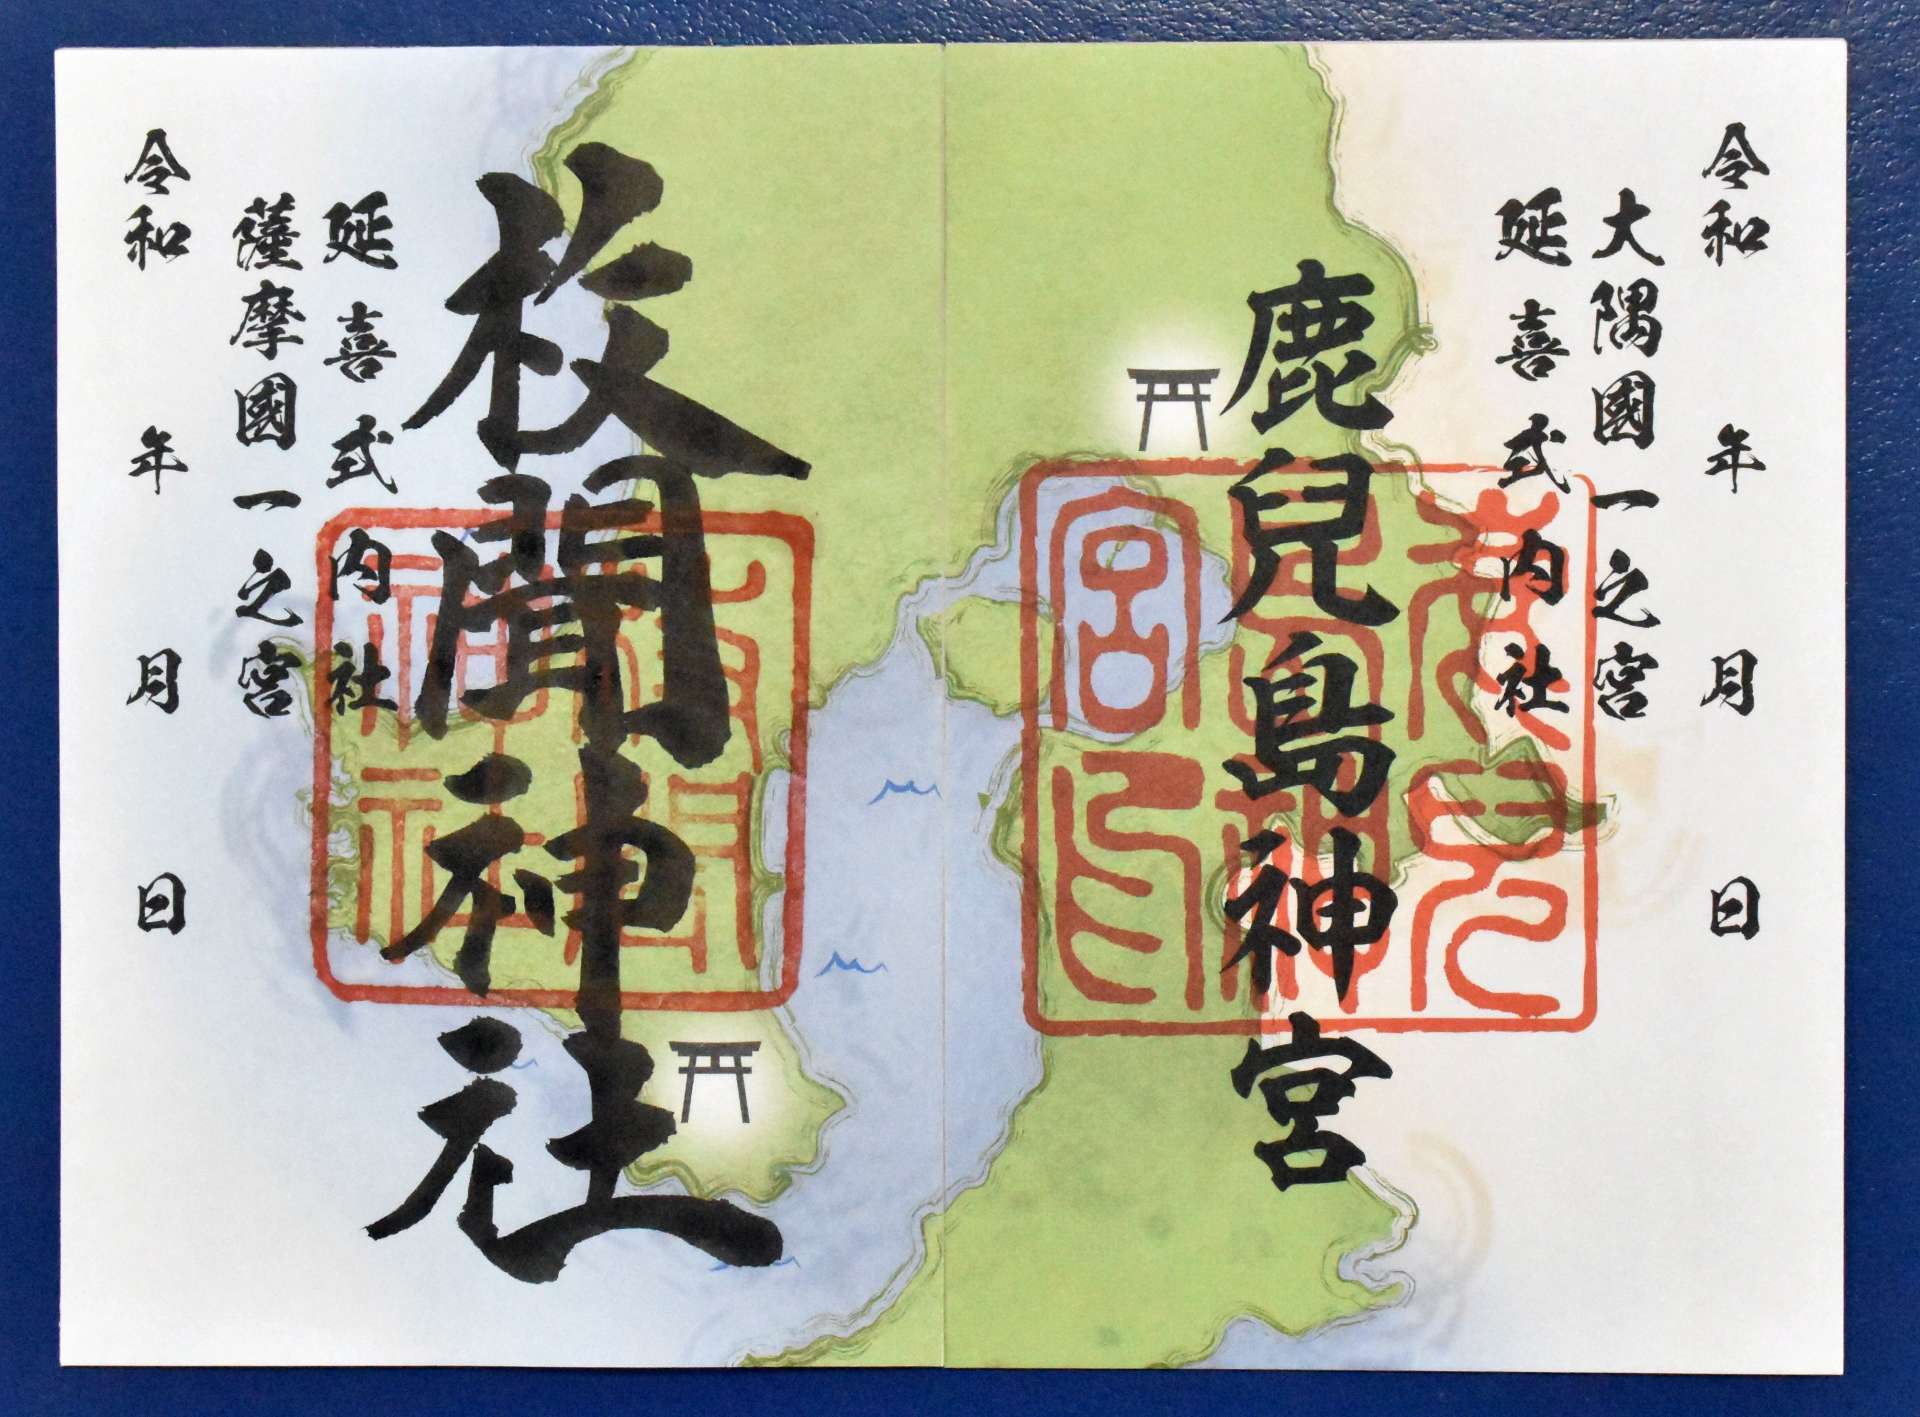 令和　年　月　日
大隅國一之宮
延喜式内社
鹿兒島神宮
枚聞神社
延喜式内社
薩摩國一之宮
令和　年　月　日